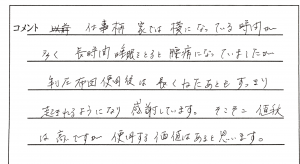 コメント 以前 仕事柄 家では 横になっている時間が
多く 長時間 睡眠をとると 腰痛になっていましたが
布団使用後は 長くねたあとも すっきり
起きれるようになり 感謝しています。 そこそこ 値段
は高いですが 使用する価値はあると思います。